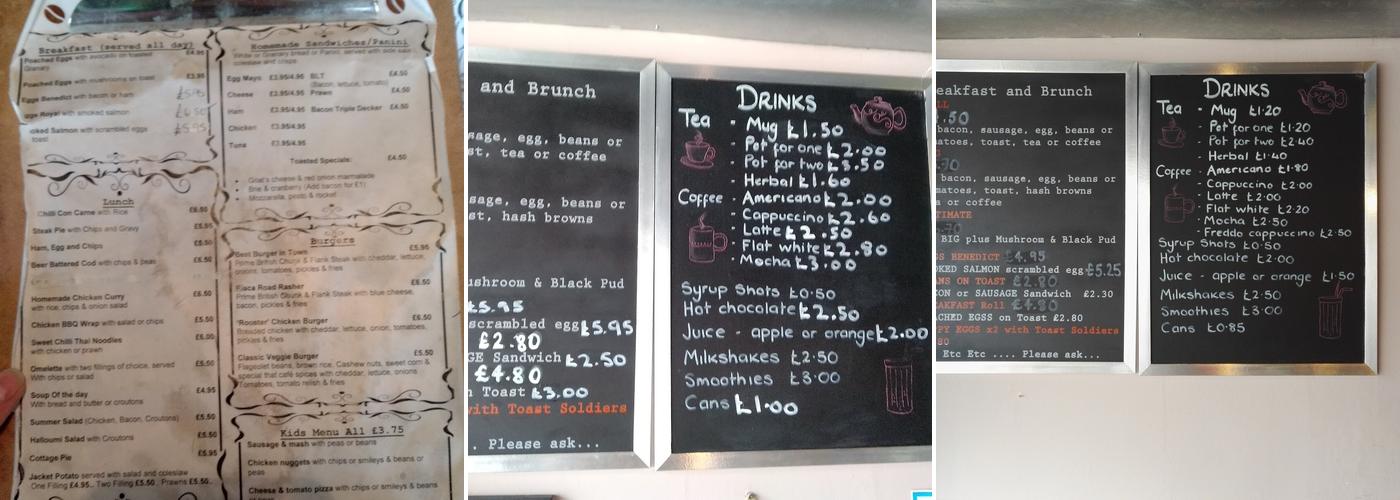 Breakfast (served all day)
Poached Eggs with avocado on toasted £4.95
Granary
Poached Eggs with mushrooms on toast £3.95
Eggs Benedict with bacon or ham £5.95
Eggs Royal with smoked salmon £6.50
oked Salmon with scrambled eggs £5.95
toast
Lunch
Chilli Con Carne with Rice £6.50
Steak Pie with Chips and Gravy £5.95
Ham, Egg and Chips £5.50
Beer Battered Cod with chips & peas £6.50
Homemade Chicken Curry £6.50
with rice, chips & onion salad
Chicken BBQ Wrap with salad or chips £5.50
Sweet Chilli Thai Noodles £6.00
with chicken or prawn
Omelette with two fillings of choice, served £5.50
With chips or salad
Soup Of the day £4.95
With bread and butter or croutons
Summer Salad (Chicken, Bacon, Croutons) £5.50
Halloumi Salad with Croutons £5.50
Cottage Pie £5.95
Jacket Potato served with salad and coleslaw
One Filling £4.95.. Two Filling £5.50. Prawns £5.50..
Homemade Sandwiches/Panini
White or Granary bread or Panini, served with side salad
coleslaw and crisps
Egg Mayo £3.95/4.95 BLT £4.50
(Bacon, lettuce, tomato)
Cheese £3.95/4.95 Prawn £4.50
Ham £3.95/4.95 Bacon Triple Decker £4.50
Chicken £3.95/4.95
Tuna £3.95/4.95
Toasted Specials: £4.50
Goat's cheese & red onion marmalade
Brie & cranberry (Add bacon for £1)
Mozzarella, pesto & rocket
Burgers
'Best Burger in Town £5.95
Prime British Chunk & Flank Steak with cheddar, lettuce,
onions, tomatoes, pickles & fries
Flaca Road Rasher £6.50
Prime British Chunk & Flank Steak with blue cheese,
bacon, pickles & fries
'Rooster' Chicken Burger £6.50
Breaded chicken with cheddar, lettuce, onion, tomatoes,
pickles & fries
Classic Veggie Burger £5.50
Flageolet beans, brown rice, Cashew nuts, sweet corn &
special thai café spices with cheddar, lettuce, onions
Tomatoes, tomato relish & fries
Kids Menu All £3.75
Sausage & mash with peas or beans
Chicken nuggets with chips or smileys & beans or
peas
Cheese & tomato pizza with chips or smileys & beans
and Brunch
sage, egg, beans or
st, tea or coffee
sage, egg, beans or
st, hash browns
ushroom & Black Pud
£5.95
scrambled egg £5.95
£2.80
GE Sandwich £2.50
£4.80
n Toast £3.00
with Toast Soldiers
. Please ask...
DRINKS
Tea - Mug £1.50
- Pot for one £2.00
- Pot for two £3.50
- Herbal £1.60
Coffee - Americano £2.00
- Cappuccino £2.60
- Latte £2.50
- Flat white £2.80
- Mocha £3.00
Syrup Shots £0.50
Hot chocolate £2.50
Juice - apple or orange £2.00
Milkshakes £2.50
Smoothies £3.00
Cans £1.00
eakfast and Brunch
LL
.50
bacon, sausage, egg, beans or
atoes, toast, tea or coffee
.70
bacon, sausage, egg, beans or
matoes, toast, hash browns
a or coffee
TIMATE
BIG plus Mushroom & Black Pud
GS BENEDICT £4.95
OKED SALMON scrambled egg £5.25
ANS ON TOAST £2.80
CON or SAUSAGE Sandwich £2.30
EAKFAST Roll £4.80
ACHED EGGS on Toast £2.80
PY EGGS x2 with Toast Soldiers
80
Etc Etc .... Please ask...
DRINKS
Tea - Mug £1.20
- Pot for one £1.20
- Pot for two £2.40
- Herbal £1.40
Coffee - Americano £1.80
- Cappuccino £2.00
- Latte £2.00
- Flat white £2.20
- Mocha £2.50
- Freddo cappuccino £2.50
Syrup Shots £0.50
Hot chocolate £2.00
Juice - apple or orange £1.50
Milkshakes £2.50
Smoothies £3.00
Cans £0.85